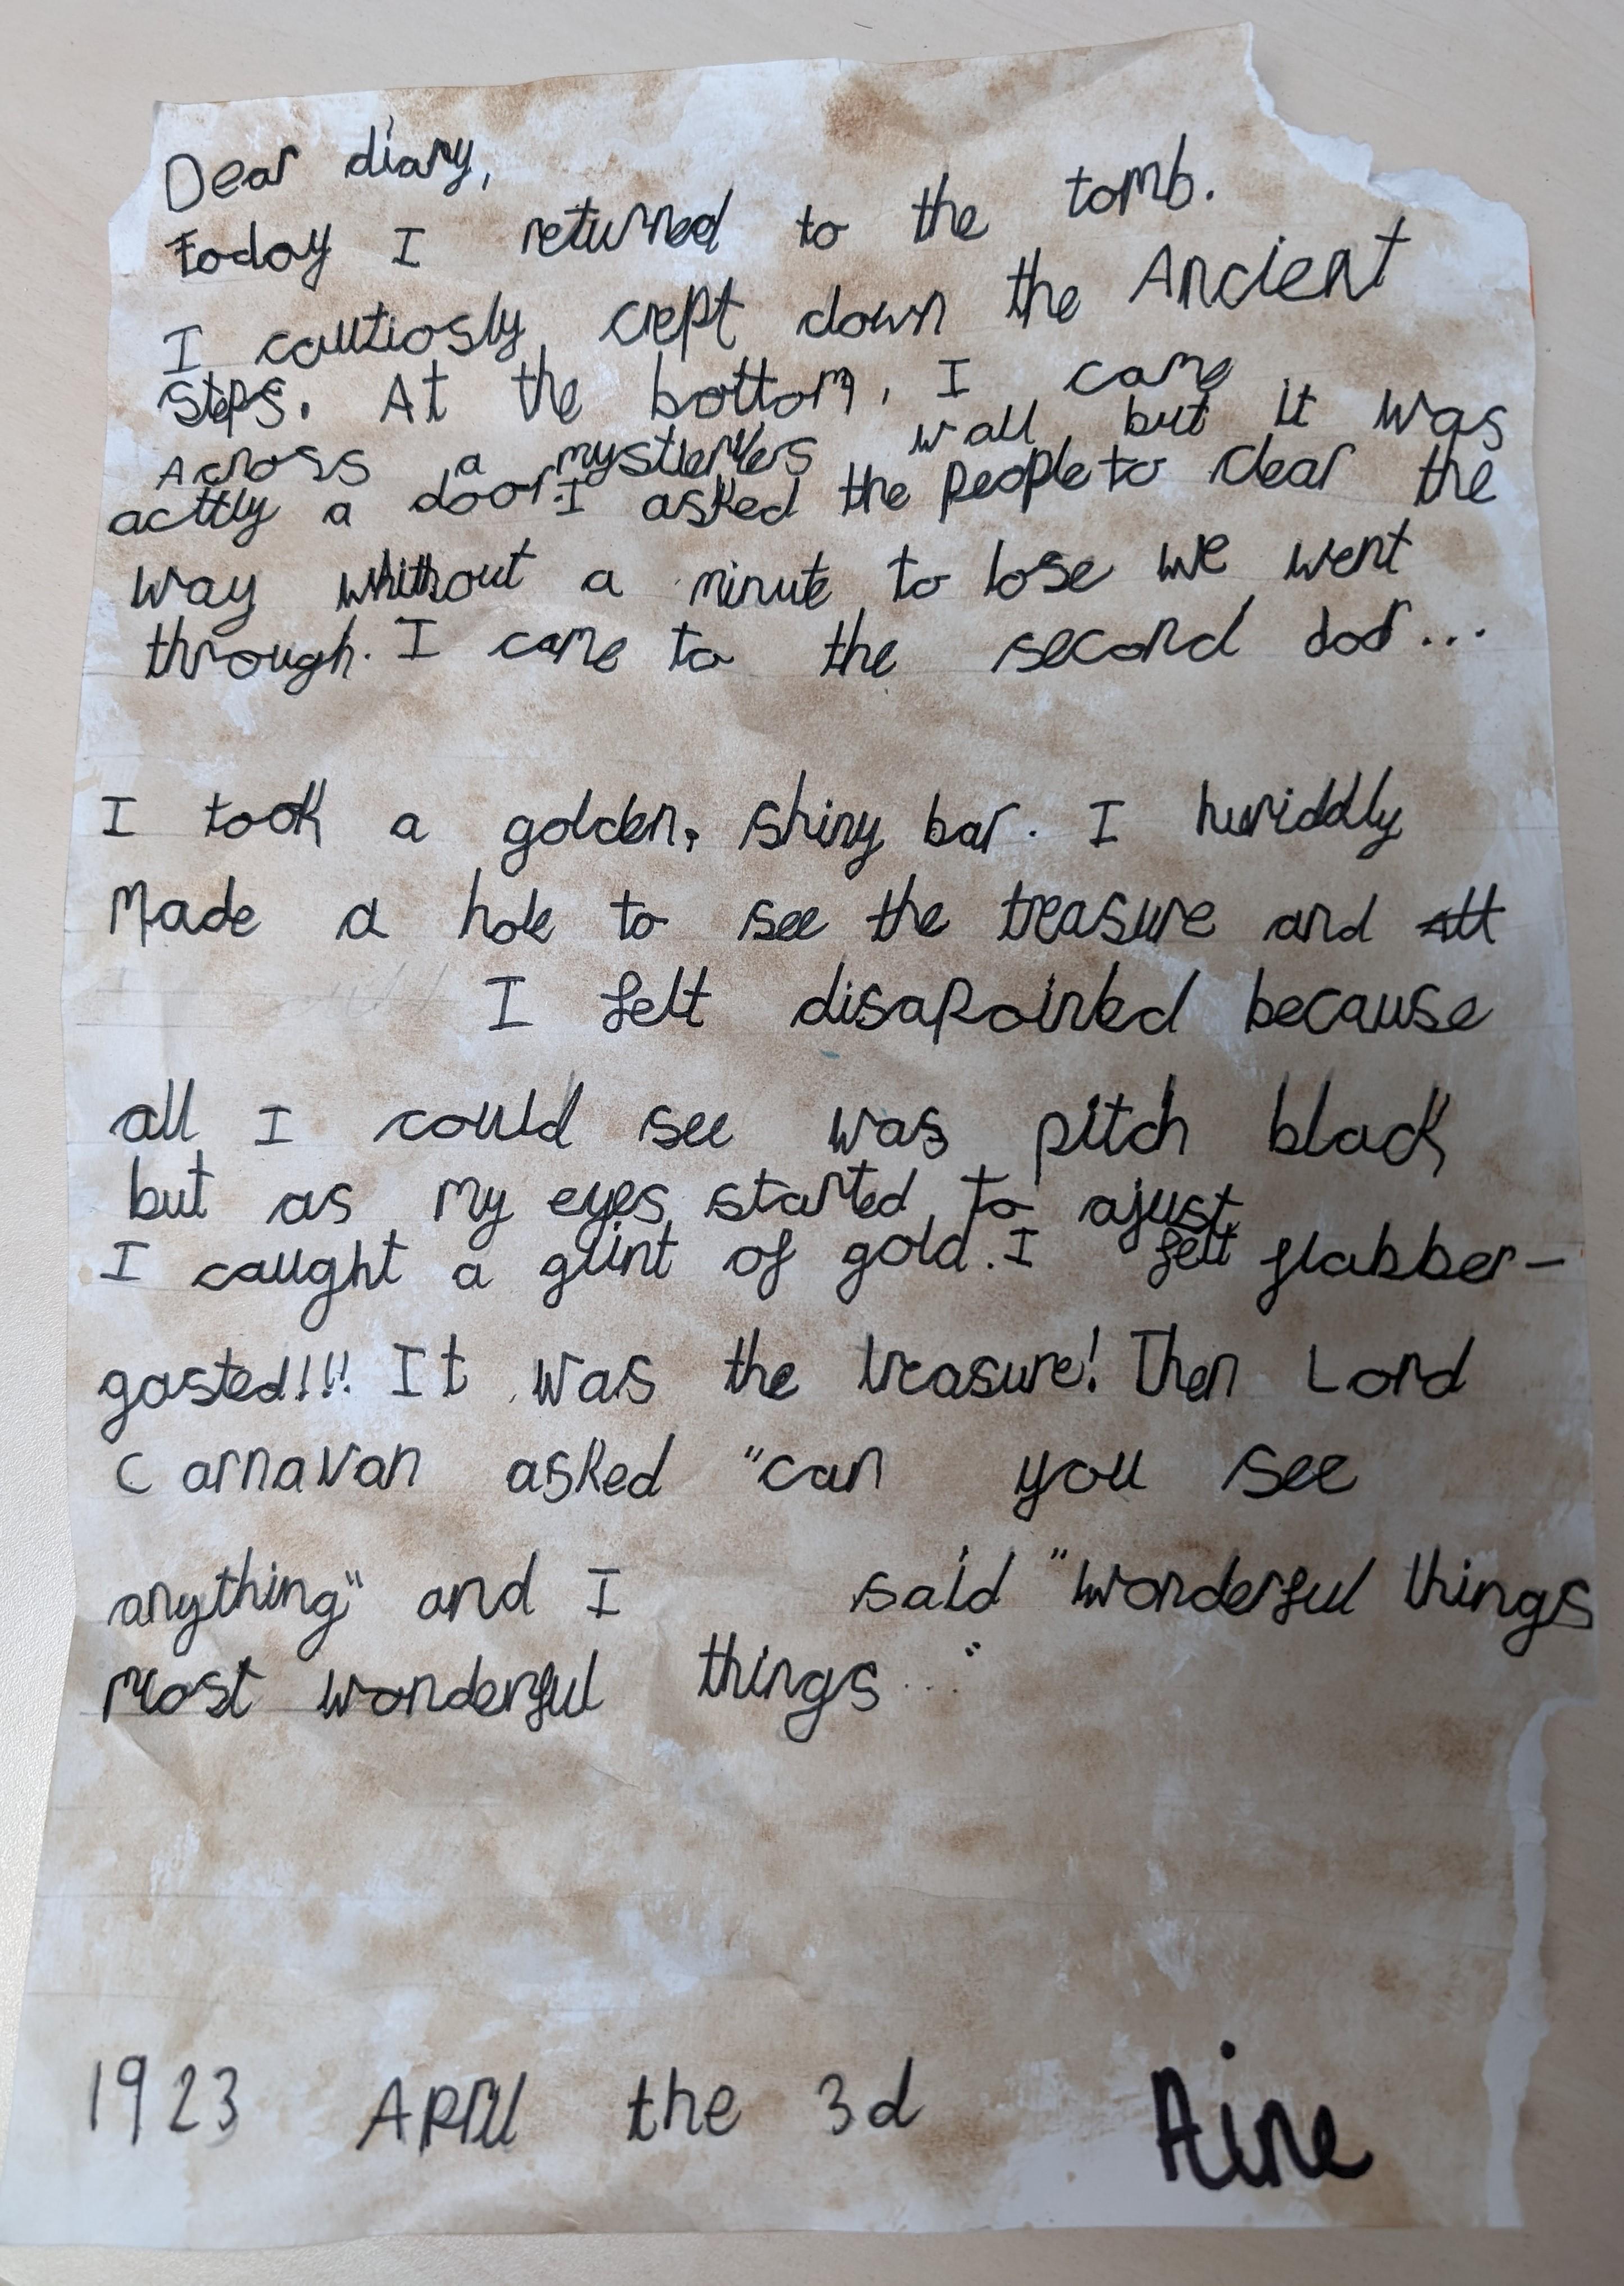 Dear diary,
Today I returned to the tomb.
I cautiosly crept down the Ancient
steps. At the bottom, I came
Across a wall but it was
acttly a door. I asked the people to clear the
way whithout a minute to lose we went
through. I came to the second door...
I took a golden, shiny bar. I huriddly
Made a hole to see the treasure and
I felt disapointed because
all I could see was pitch black
but as my eyes started to ajust
I caught a glint of gold. I felt flabber-
gasted!!! It was the treasure! Then Lord
Carnavan asked "can you see
anything" and I said "wonderful things
Most wonderful things..."
1923 April the 3d Aine